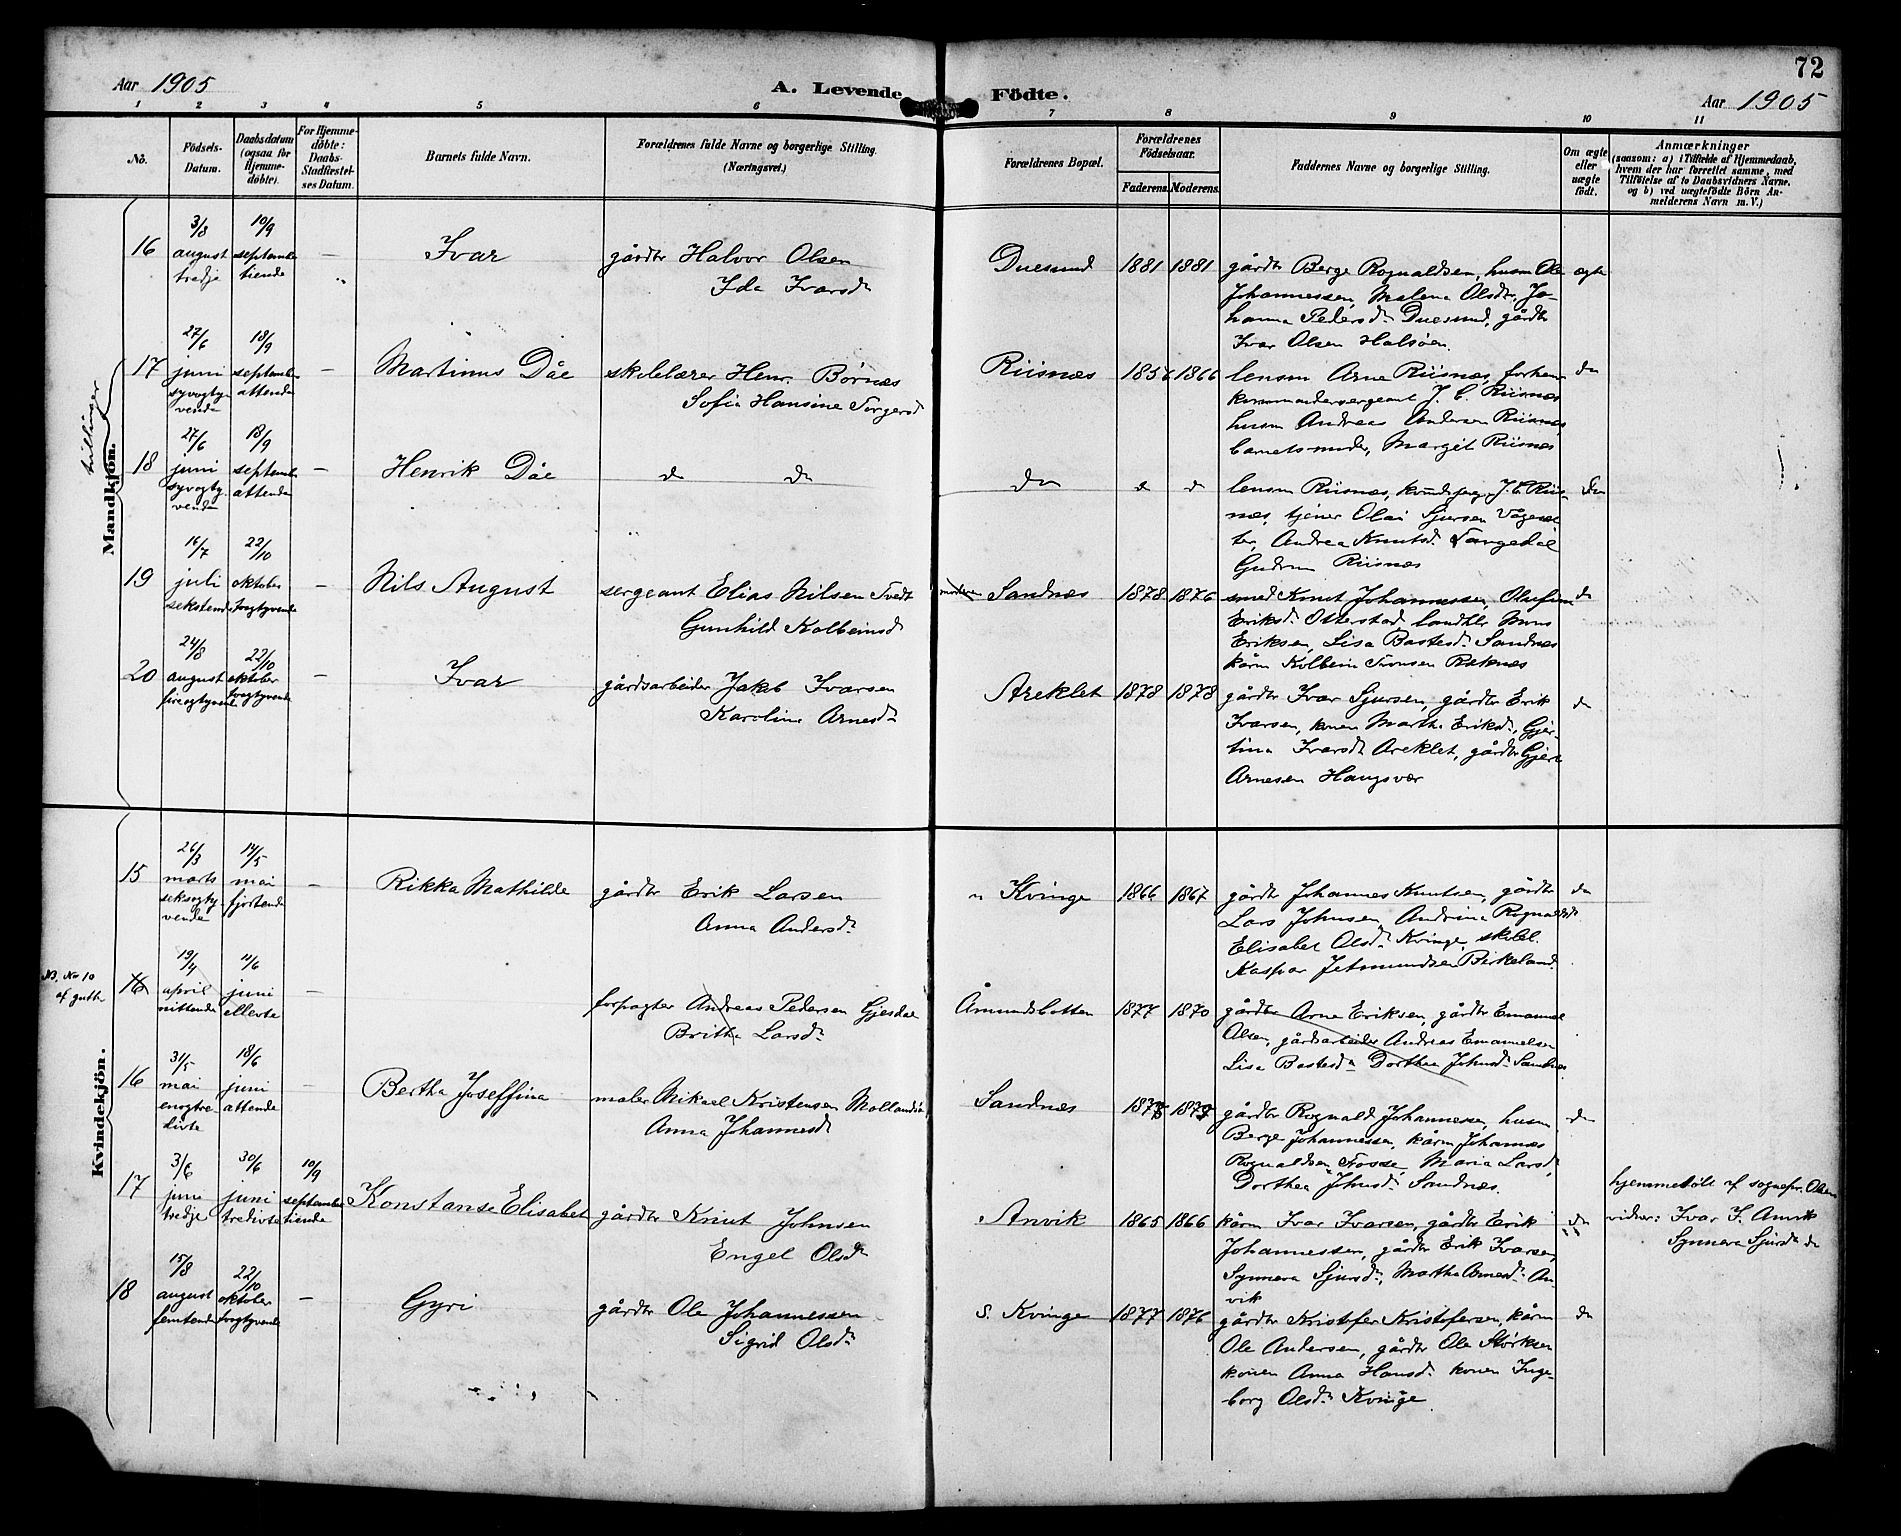 72
Aar 1905
A. Levende Födte.
Aar 1905
1 2 3 4 5 6 7 8 9 10 11
No.
Födsels-
Datum.
Daabsdatum
(ogsaa for
Hjemme-
döbte).
For Hjemme-
döbte:
Daabs-
Stadfæstel-
ses Datum.
Barnets fulde Navn.
Forældrenes fulde Navne og borgerlige Stilling.
(Næringsvei.)
Forældrenes Bopæl.
Forældrenes
Födselsaar.
Faderens. Moderens.
Faddernes Navne og borgerlige Stilling.
Om ægte
eller
uægte
födt.
Anmærkninger
(saasom: a) i Tilfælde af Hjemmedaab,
hvem der har forrettet samme, med
Tilföielse af to Daabsvidners Navne,
og b) ved uægtefödte Börn An-
melderens Navn m. V.)
Mandkjön.
tvillinger
16
3/8
august
tredje
10/9
septembr
tiende
—
Ivar
gårdbr Halvor Olsen
Ida Ivarsdr
Duesund
1881 1881
gårdbr Berge Rognaldsen, husm Ole
Johannessen, Malena Olsdr, Jo-
hanna Pedersdr Duesund, gårdbr
Ivar Olsen Halsöen.
ægte
17
27/6
juni
syvogty-
vende
18/9
septembr
attende
—
Martinus Dåe
skolelærer Henr. Börnæs
Sofia Hansine Torgersdr
Riisnæs
1856 1866
lensm Arne Riisnæs, forhenv
kommandersergeant J. C. Riisnæs
husm Andreas Andersen Riisnæs,
barnets moder, Margit Riisnæs
do
18
27/6
juni
syvogty-
vende
18/9
septembr
attende
—
Henrik Dåe
do do
do
do do
lensm Riisnæs, J. C. Riis-
næs, tjener Olai Sjursen Vågesæ-
ter, Andrea Knutsdr Tangedal
Gudrun Riisnæs
do
19
16/7
juli
sekstende
22/10
oktober
toogtyvende
—
Nils August
sergeant Elias Nilsen Tvedt
Gunhild Kolbeinsdr
moderen Sandnæs
1878 1876
smed Knut Johannessen, Olufine
Eriksdr Otterstad, landhlr Mons
Eriksen, Lisa Bastesdr Sandnæs
kårm Kolbein Tronsen Reknæs
do
20
24/8
august
fireogtyvende
22/10
oktober
toogtyvende
—
Ivar
gårdsarbeider Jakob Ivarsen
Karoline Arnesdr
Areklet
1878 1878
gårdbr Ivar Sjursen, gårdbr Erik
Ivarsen, konen Martha Eriksdr, Gjer-
tina Ivarsdr Areklet, gårdbr Gjert
Arnesen Haugsvær
do
Kvindekjön.
15
26/3
marts
seksogty-
vende
14/5
mai
fjortende
—
Rikka Mathilde
gårdbr Erik Larsen
Anna Andersdr
n Kvinge
1866 1867
gårdbr Johannes Knutsen, gårdbr
Lars Johnsen, Andrina Rognaldsdr
Elisabet Olsdr Kvinge, skolel.
Kaspar Jetmundsen Birkeland.
do
NB. No 10
af gutte
16
19/4
april
nittende
11/6
juni
ellevte
—
forpagter Andreas Pedersen Gjesdal
Britha Larsdr
Åmundsbotten
1877 1870
gårdbr Arne Eriksen, gårdbr Emanuel
Olsen, gårdsarbeider Andreas Emanuelsen
Lisa Bastesdr Dorthea Johnsdr Sandnæs
16
31/5
mai
enogtre-
divte
18/6
juni
attende
—
Bertha Joseffina
maler Mikael Kristensen
Anna Johannesdr
Sandnæs
gårdbr Rognald Johannessen, husm
Berge Johannessen, kårm Johannes
Rognaldsen Fosse, Maria Larsdr,
Dorthea Johnsdr Sandnæs.
do
17
3/6
juni
tredje
30/6
juni
tredivte
10/9
september
tiende
Konstanse Elisabet
gårdbr Knut Johnsen
Engel Olsdr
Anvik
1865 1866
kårm Ivar Ivarsen, gårdbr Erik
Johannessen, gårdbr Erik Ivarsen,
Synneva Sjursdr, Martha Arnesdr An-
vik
do
hjemmedöbt af sognepr. Olsen
vidner: Ivar I. Anvik
Synneva Sjursdr do
18
15/8
august
femtende
22/10
oktober
toogtyvende
—
Gyri
gårdbr Ole Johannessen
Sigrid Olsdr
S. Kvinge
1877 1876
gårdbr Kristofer Kristofersen, kårm
Ole Andersen, gårdbr Ole Störksen
konen Anna Hansdr konen Inge-
borg Olsdr Kvinge.
do